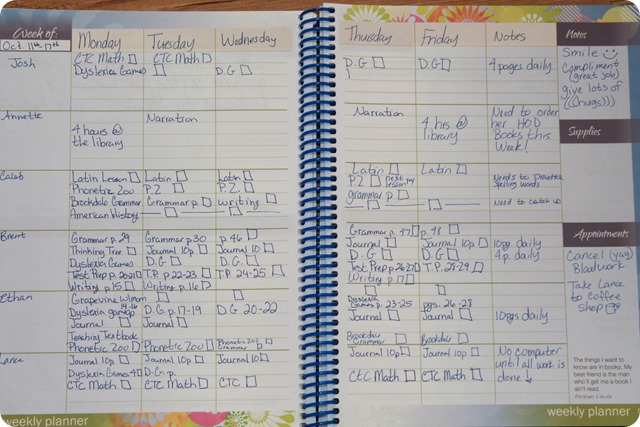 Week of:
Oct. 11th-17th
Monday
Tuesday
Wednesday
Thursday
Friday
Notes
Notes
Josh
CTC Math
CTC Math
Dyslexia Games
D.G
D.G
D.G
4 pages daily
Smile
Compliment
(great job)
give lots of
(((hugs)))
Annette
4 hours @
the library
Narration
Narration
4 hrs @
library
Need to order
her HOD
Books this
Week!
Supplies
Caleb
Latin Lesson
Latin
Latin
Latin
Latin
Phonetic Zoo
P.Z
P.Z.
P.Z
next
lesson
Needs to Practice
Spelling words
Brookdale Grammar
Grammar p
Writing
grammar p
Need to catch up
American History
Brent
Grammar p. 29
Grammar p.30
p. 46
Grammar p. 47
p. 48
Thinking Tree
Journal 10p
Journal 10
Journal
Journal 10p
10pg. daily
Dyslexia Games
D.G
D.G.
D.G
D.G
4p. daily
Test Prep p.20-21
T.P. 22-23
T.P. 24-25
Test Prep p.26-27
T.P. 28-29
Writing p.15
Writing p.16
Writing p.17
Appointments
Cancel (yay)
Bloodwork
Take Lance
to Coffee
shop
Ethan
Grapevine
Dyslexia games
14-16
D.G. p.17-19
D.G 20-22
Dyslexia
Games p. 23-25
pgs. 26-28
Journal
Journal
Journal
Journal
10pgs daily
Teaching Textbook
Phonetic Zoo
Phonetic Zoo
Phonetic Zoo
Grammar
Brookdale
Grammar
Brookdale
Lance
Journal 10p
Journal 10p
Journal 10
Journal 10p
Journal 10p
No computer
until all work is
done
Dyslexia Games 4p
D.G. p.
CTC Math
CTC Math
CTC
CTC Math
CTC Math
The things I want to
know are in books. My
best friend is the man
who'll get me a book I
ain't read.
Abraham Lincoln
weekly planner
weekly planner